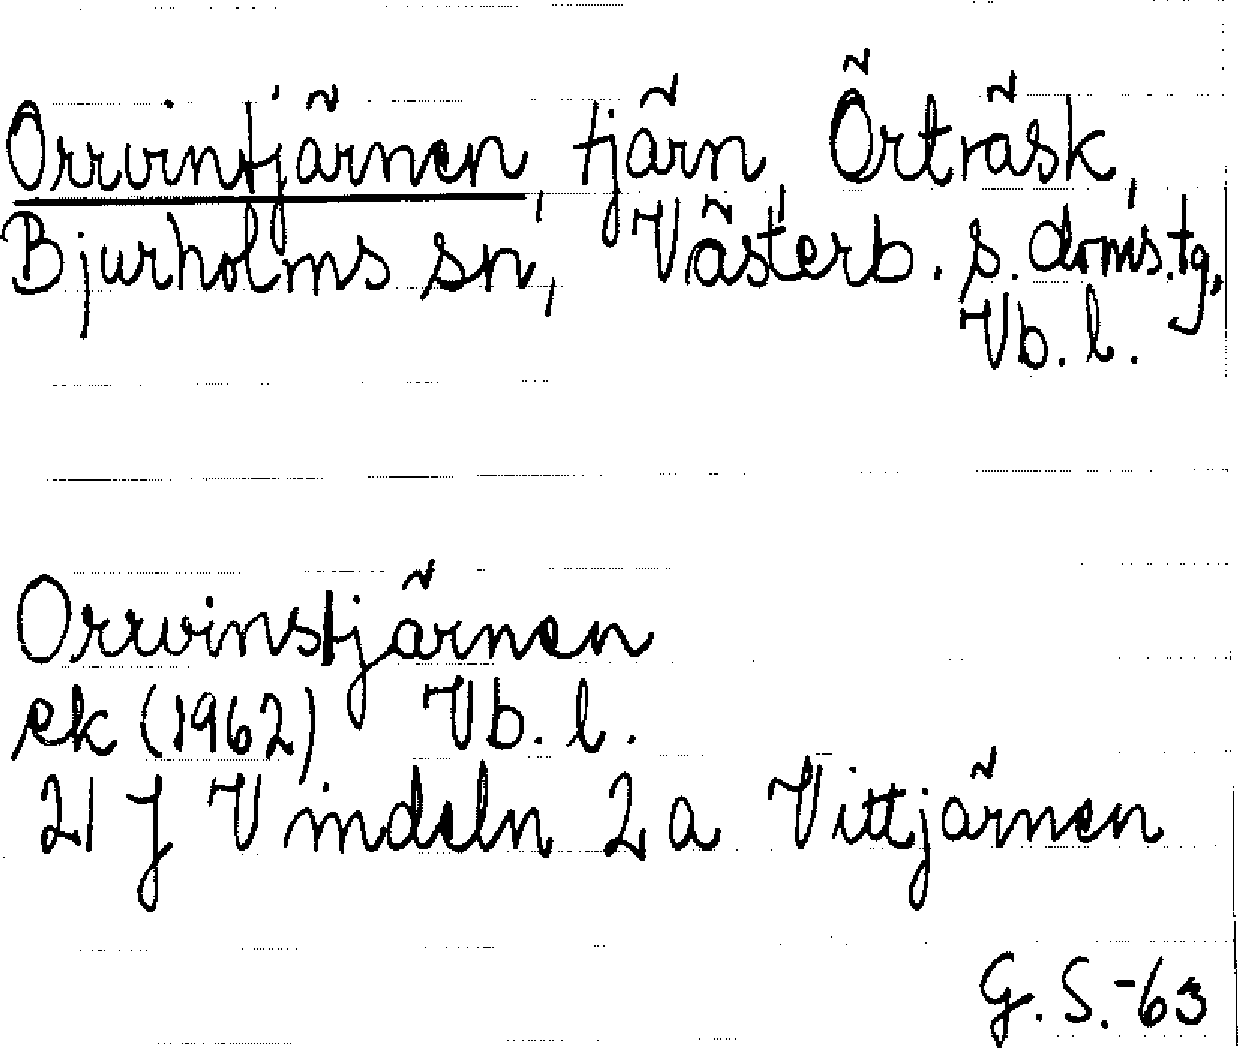 Orrvintjärnen, tjärn, Örträsk,
Bjurholms sn, Västerb. s. doms.tg,
Vb. l.
Orrvinstjärnen
ek (1962) Vb. l.
21 J Vindeln 2 a Vittjärnen
G. S. -63